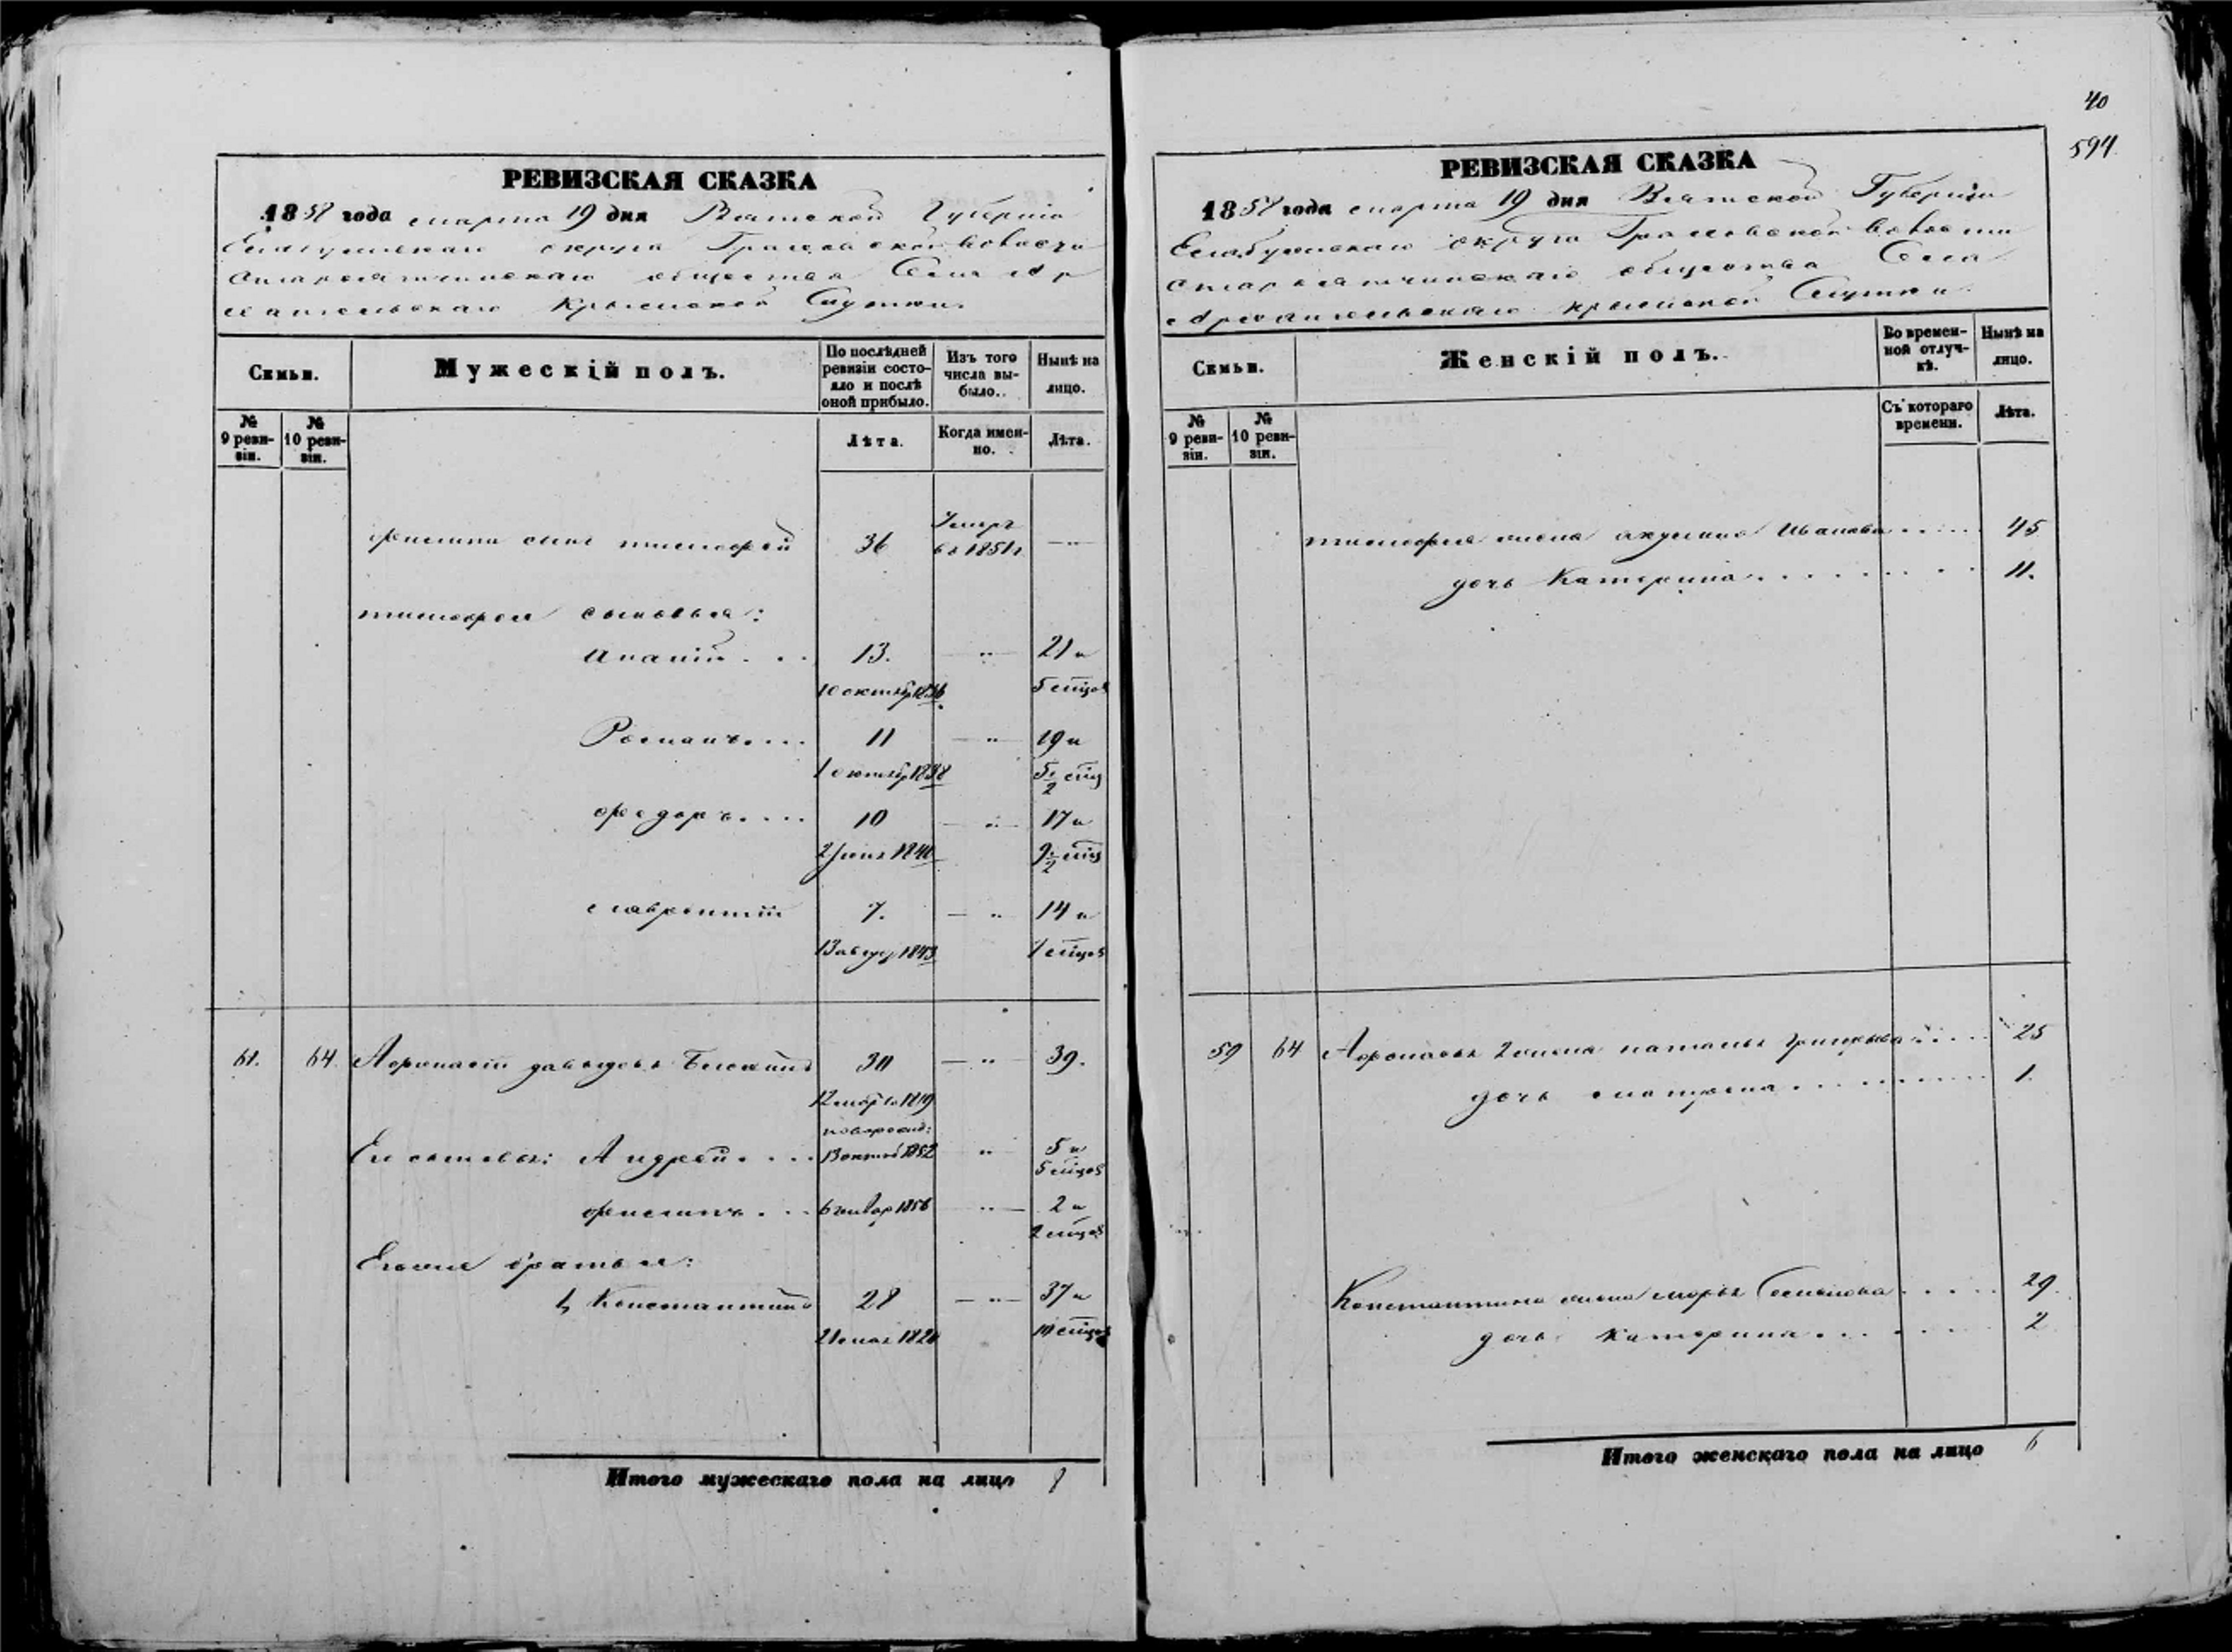 40
594
РЕВИЗСКАЯ СКАЗКА
1858 года марта 19 дня Вятской Губерніи
округа Граховской волости
общества Села Ар
хангельскаго Крымской Слудки
Семьи.
Мужескій полъ.
По послѣдней ревизіи состояло и послѣ оной прибыло.
Изъ того числа выбыло.
Нынѣ на лицо.
№ 9 ревизіи.
№ 10 ревизіи.
Лѣта.
Когда именно.
Лѣта.
Филипа сынъ тимофей 36 Умеръ въ 1851 г —"—
тимофея сыновья:
Ананій . . . 13. —"— 21 и
10 октяб 1836 5 мѣцов
Романъ . . . . 11 —"— 19 и
1 октяб 1838 5 1/2 мѣц
Федоръ . . . . 10 —"— 17 и
1840 9 1/2 мѣц
лаврентій 7. —"— 14 и
13 авгус 1843 мѣцов
61. 64 Афонасій давыдовъ 30 —"— 39.
12 марта 1819
новорожд:
Его сыновья: Андрей . . . . 13 октяб 1852 " 5 и
5 мѣцов
Филипъ . . . 6 январ 1856 —"— 2 и
2 мѣцов
Его же братья:
1, Константинъ 28 —"— 37 и
21 мая 1820 10 мѣцов
Итого мужескаго пола на лицо 8
РЕВИЗСКАЯ СКАЗКА
1858 года марта 19 дня Вятской Губерніи
Елабужскаго округа Граховской волости
общества Села
Архангельскаго Крымской Слудки
Семьи.
Женскій полъ.
Во временной отлучкѣ.
Нынѣ на лицо.
№ 9 ревизіи.
№ 10 ревизіи.
Съ котораго времени.
Лѣта.
тимофея жена акулина Иванова . . . . . 45
дочь Катерина . . . . . . . . . 11.
59 64 Афонасья 2 жена наталья Григорьева . . . . . 25
дочь матрена . . . . . . . . . . 1.
Константина жена марья Семенова . . . . . 29.
дочь катерина . . . . . . . . 2
Итого женскаго пола на лицо 6